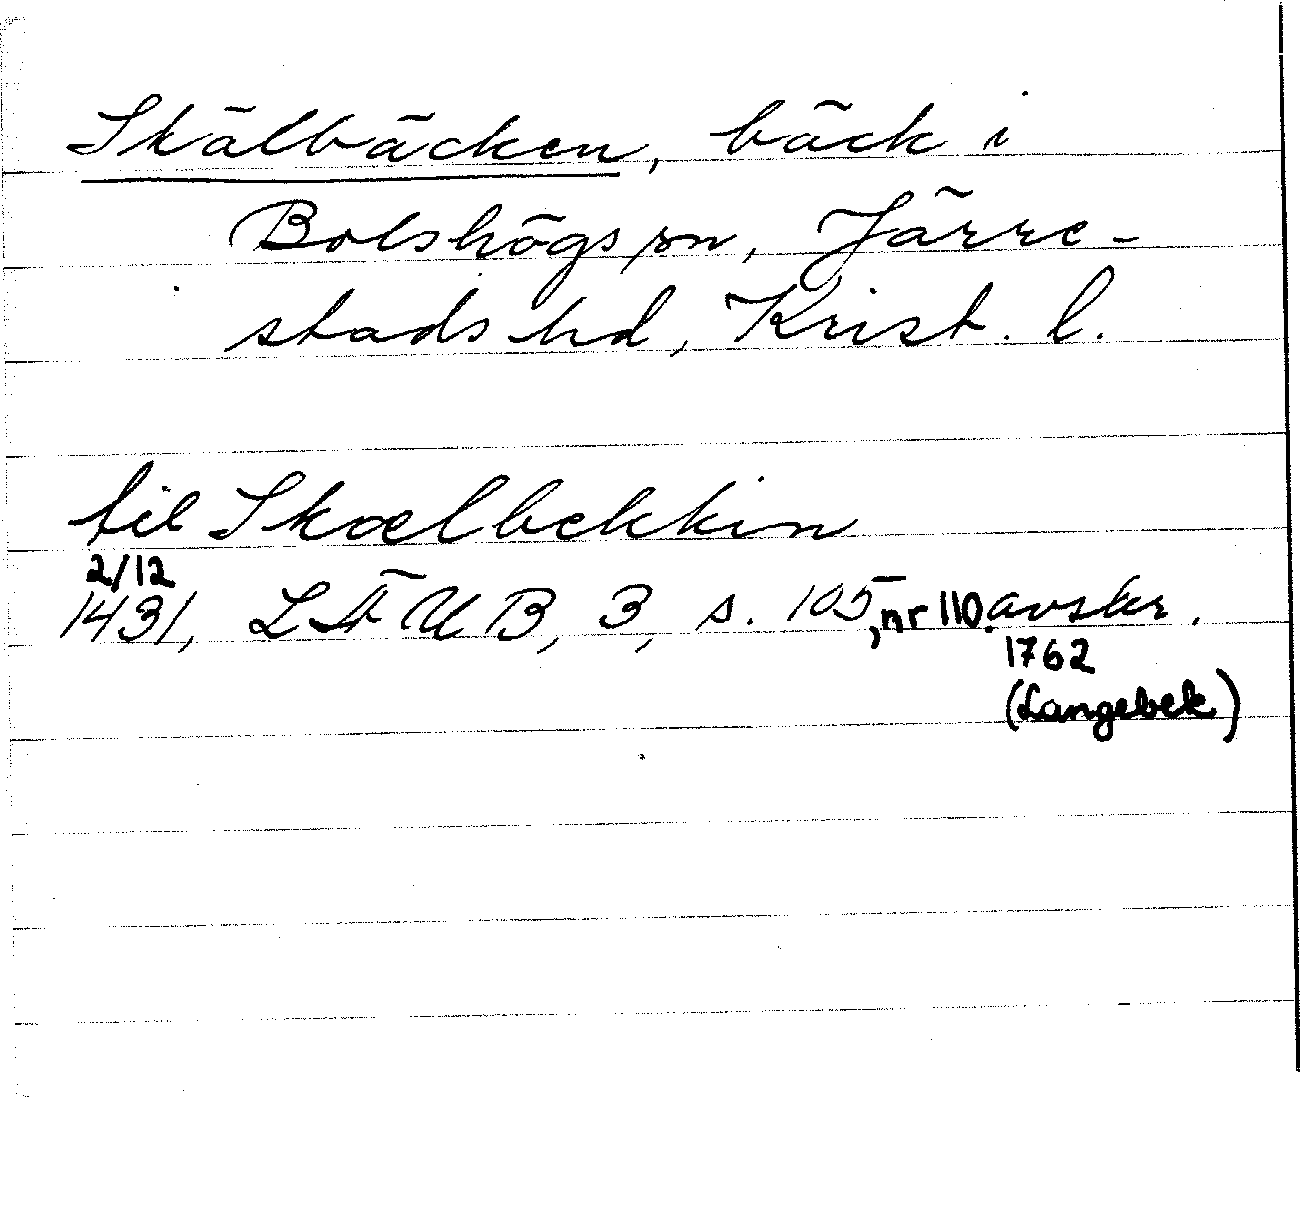 Skälbäcken, bäck i
Bolshögs sn, Järre-
stads hd, Krist. l.
til Skælbekkin
2/12
1431, LÄUB, 3, s. 105, nr 110. avskr.
1762
(Langebek)